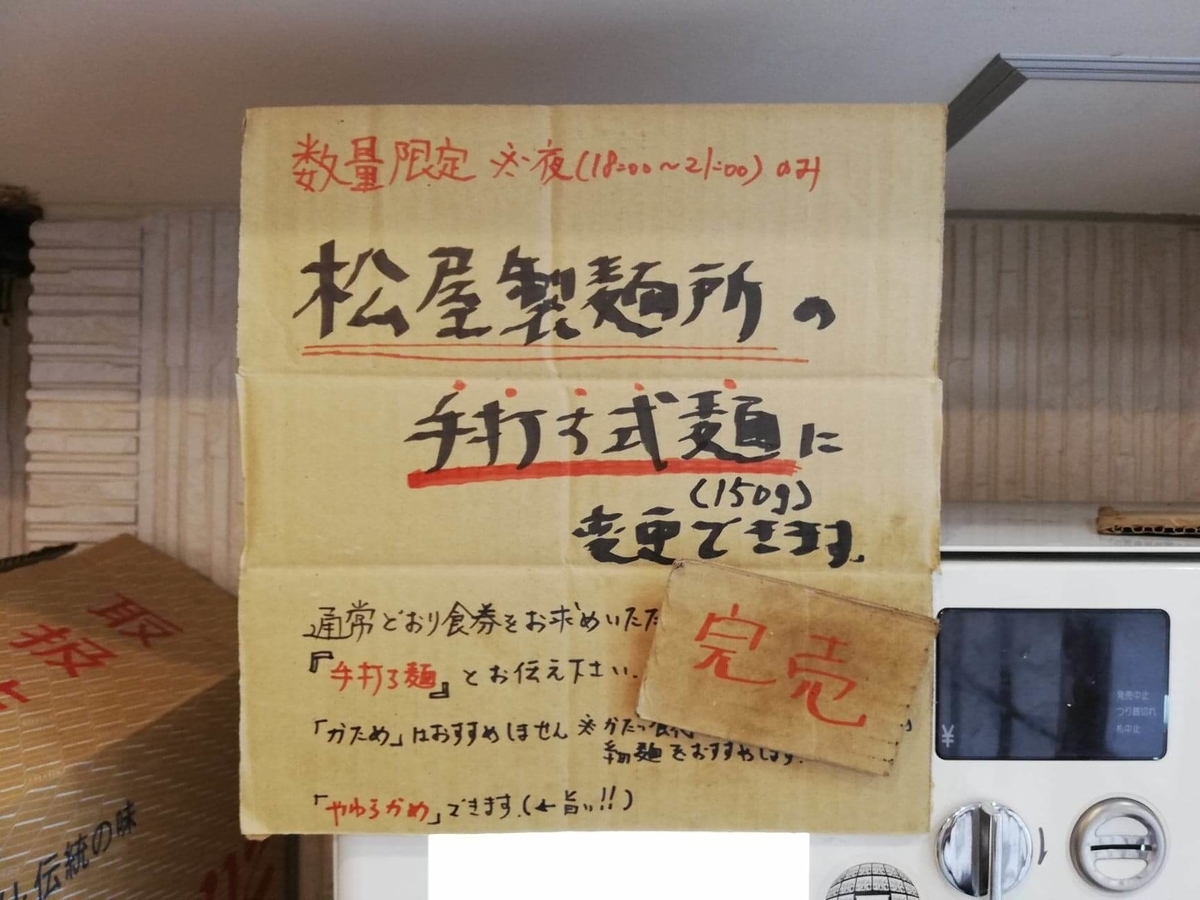 数量限定 ※夜(18:00〜21:00)のみ
松屋製麺所の
手打ち式麺に
(150g)
変更できます。
通常どおり食券をお求めいただ
『手打ち麺』とお伝え下さい.
完売
「かため」はおすすめしません ※かたい食
細麺をおすすめします.
「やわらかめ」できます.(←旨い!!)
取
扱
伝統の味
発売中止
つり銭切れ
札中止
¥